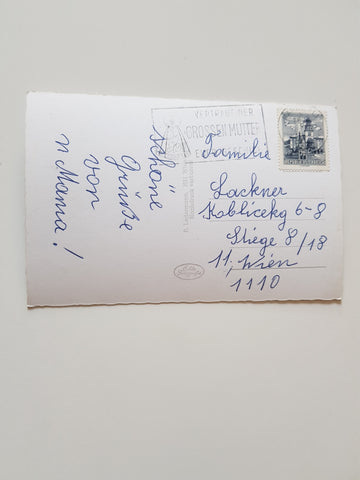 Schöne
Grüße
von
Mama!
VERTRAUT DER
GROSSEN MUTTER
Familie
Lackner
Koblicekg 6-8
Stiege 8/18
11, Wien
1110